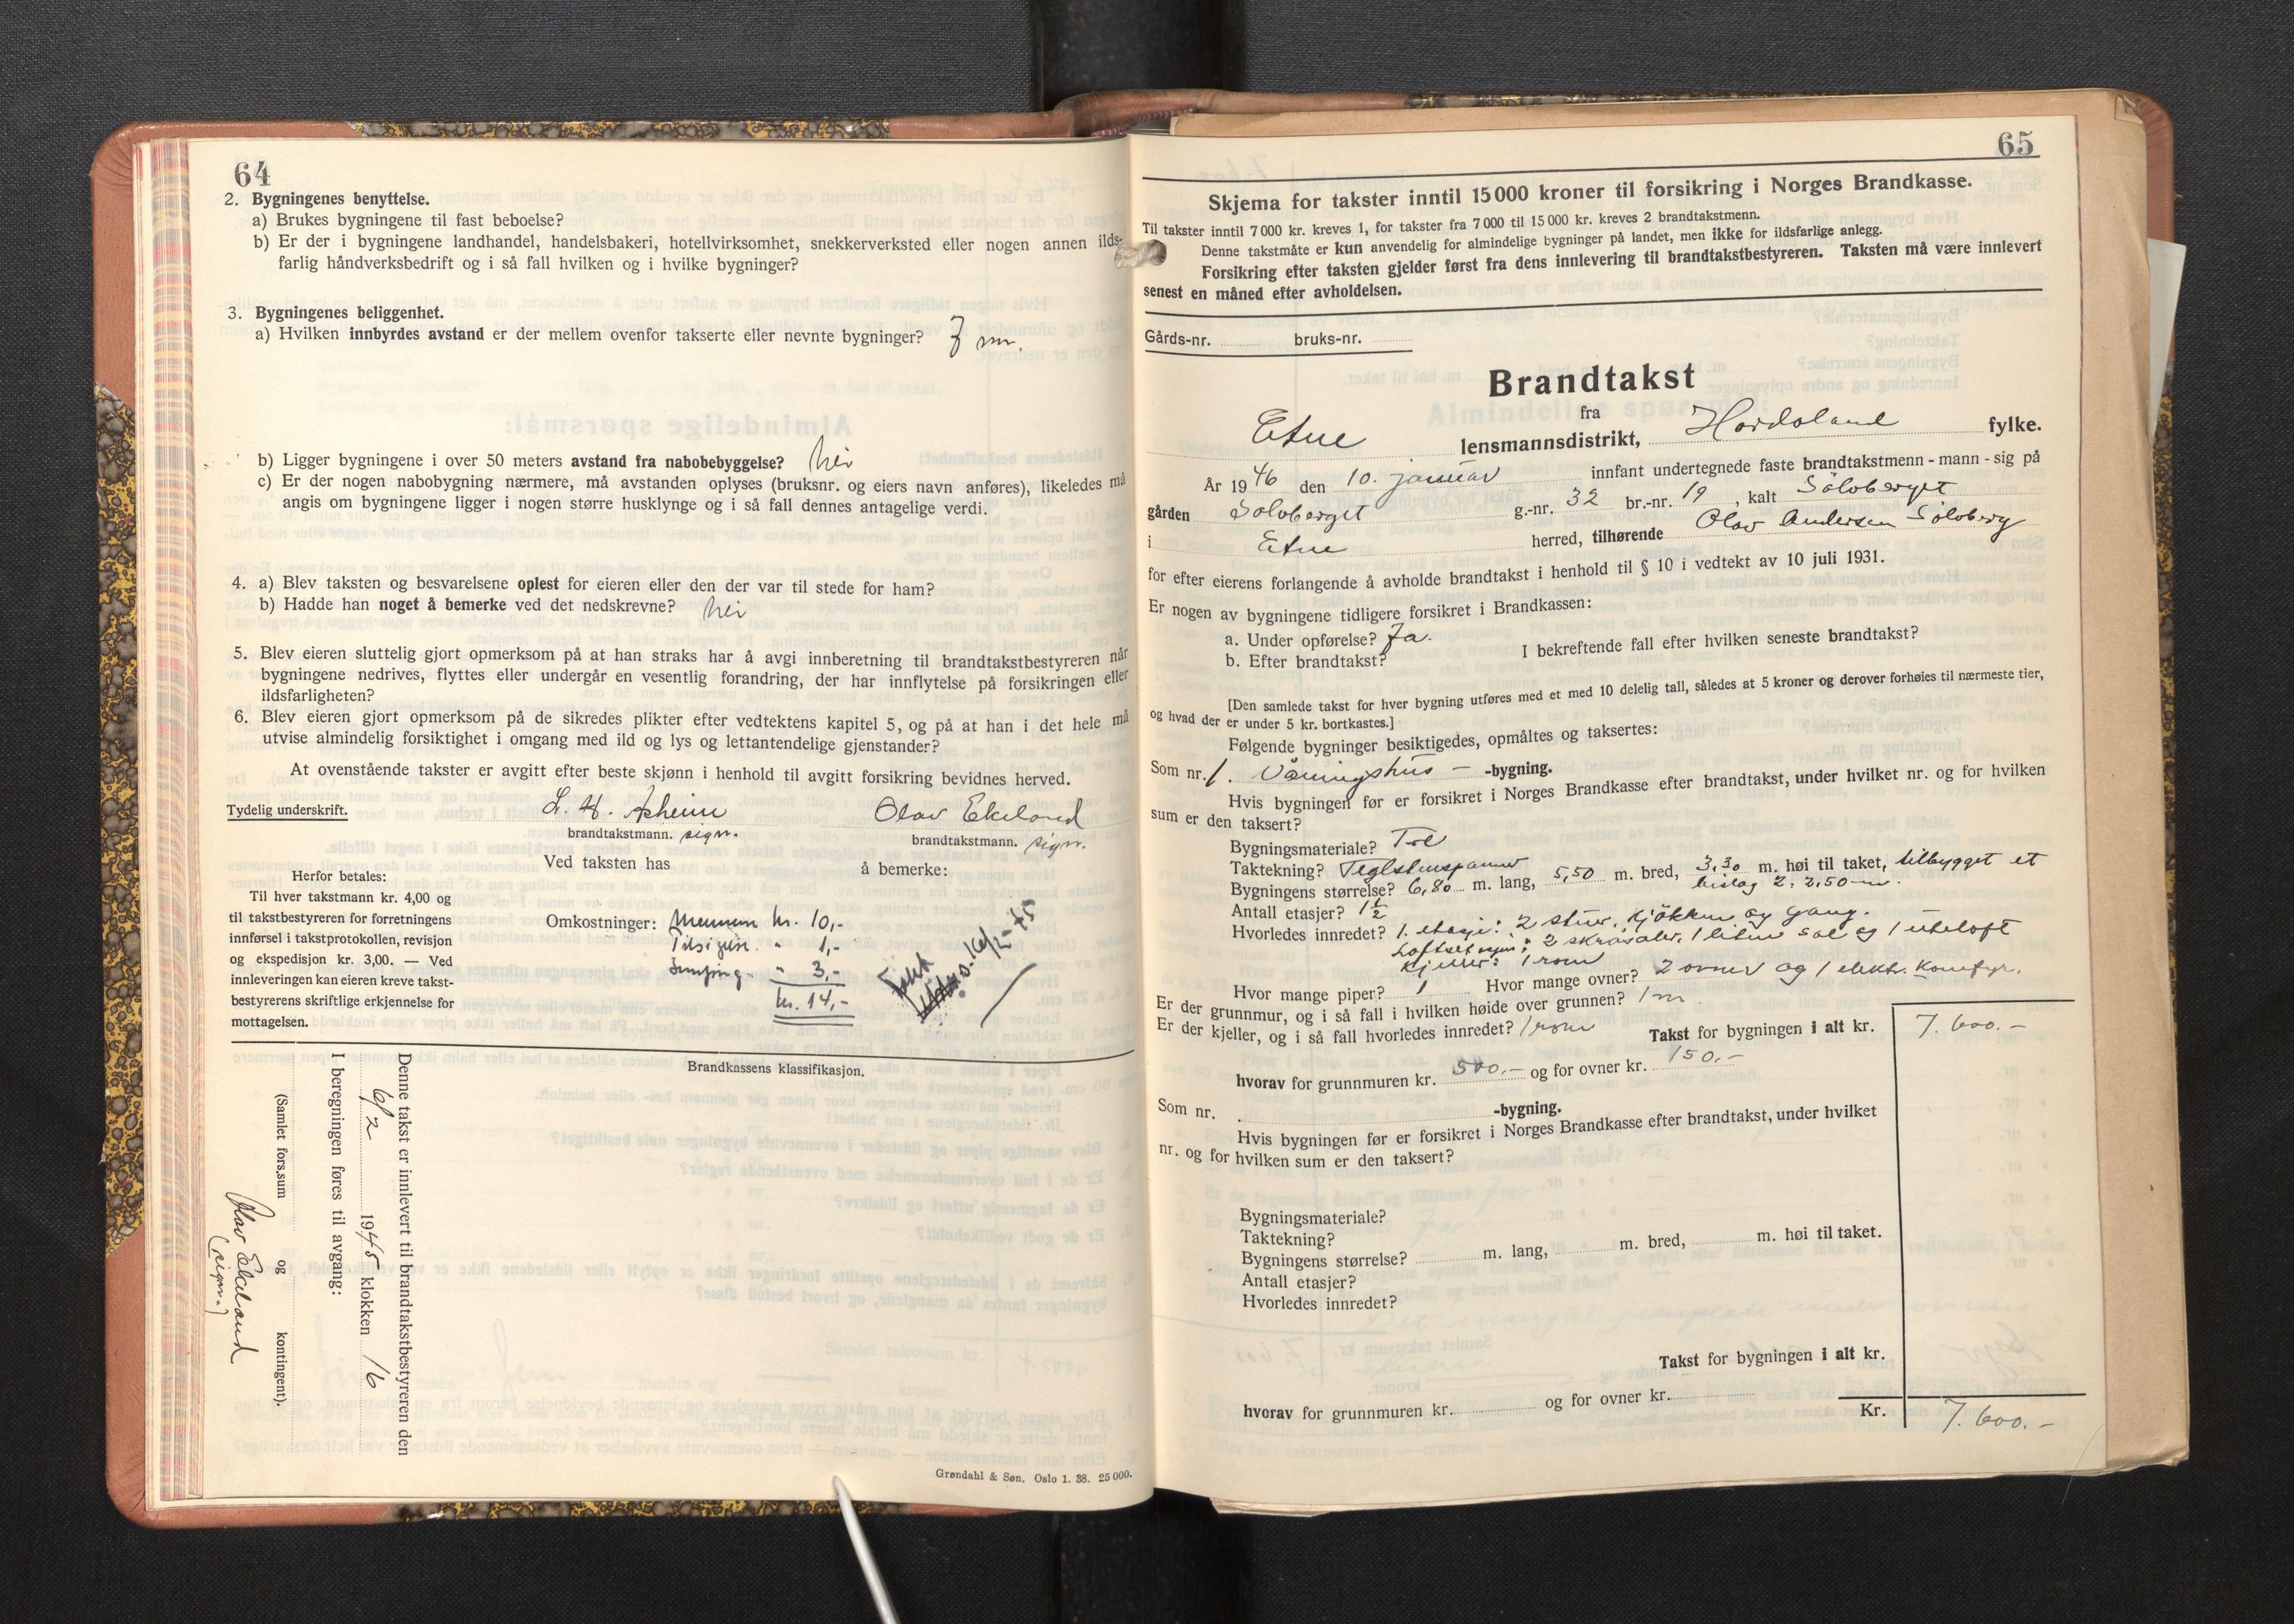 64
2. Bygningenes benyttelse.
a) Brukes bygningene til fast beboelse?
b) Er der i bygningene landhandel, handelsbakeri, hotellvirksomhet, snekkerverksted eller nogen annen ilds-
farlig håndverksbedrift og i så fall hvilken og i hvilke bygninger?
3. Bygningenes beliggenhet.
a) Hvilken innbyrdes avstand er der mellem ovenfor takserte eller nevnte bygninger? 7 m.
b) Ligger bygningene i over 50 meters avstand fra nabobebyggelse? Nei
c) Er der nogen nabobygning nærmere, må avstanden oplyses (bruksnr. og eiers navn anføres), likeledes må
angis om bygningene ligger i nogen større husklynge og i så fall dennes antagelige verdi.
4. a) Blev taksten og besvarelsene oplest for eieren eller den der var til stede for ham?
b) Hadde han noget å bemerke ved det nedskrevne? Nei
5. Blev eieren sluttelig gjort opmerksom på at han straks har å avgi innberetning til brandtakstbestyreren når
bygningene nedrives, flyttes eller undergår en vesentlig forandring, der har innflytelse på forsikringen eller
ildsfarligheten?
6. Blev eieren gjort opmerksom på de sikredes plikter efter vedtektens kapitel 5, og på at han i det hele må
utvise almindelig forsiktighet i omgang med ild og lys og lettantendelige gjenstander?
At ovenstående takster er avgitt efter beste skjønn i henhold til avgitt forsikring bevidnes herved.
Tydelig underskrift. Asheim Olav Ekeland
brandtakstmann. sign. brandtakstmann. sign.
Ved taksten has å bemerke:
Herfor betales:
Til hver takstmann kr. 4,00 og
til takstbestyreren for forretningens
innførsel i takstprotokollen, revisjon
og ekspedisjon kr. 3,00. — Ved
innleveringen kan eieren kreve takst-
bestyrerens skriftlige erkjennelse for
mottagelsen.
Omkostninger: Mennene kr. 10,-
" 1,-
" 3,-
kr. 14,-
Brandkassens klassifikasjon.
Denne takst er innlevert til brandtakstbestyreren den
6/2 1945 klokken 16
I beregningen føres til avgang:
(Samlet fors.sum og kontingent).
Olav Ekeland
(sign.)
Grøndahl & Søn. Oslo 1. 38. 25 000.
65
Skjema for takster inntil 15 000 kroner til forsikring i Norges Brandkasse.
Til takster inntil 7 000 kr. kreves 1, for takster fra 7 000 til 15 000 kr. kreves 2 brandtakstmenn.
Denne takstmåte er kun anvendelig for almindelige bygninger på landet, men ikke for ildsfarlige anlegg.
Forsikring efter taksten gjelder først fra dens innlevering til brandtakstbestyreren. Taksten må være innlevert
senest en måned efter avholdelsen.
Gårds-nr. bruks-nr.
Brandtakst
fra
Etne lensmannsdistrikt, Hordaland fylke.
År 1946 den 10. januar innfant undertegnede faste brandtakstmenn - mann - sig på
gården Soloberget g.-nr. 32 br.-nr. 19, kalt Soloberget
i Etne herred, tilhørende Olav Andersen Soloberg
for efter eierens forlangende å avholde brandtakst i henhold til § 10 i vedtekt av 10 juli 1931.
Er nogen av bygningene tidligere forsikret i Brandkassen:
a. Under opførelse? Ja.
b. Efter brandtakst? I bekreftende fall efter hvilken seneste brandtakst?
[Den samlede takst for hver bygning utføres med et med 10 delelig tall, således at 5 kroner og derover forhøies til nærmeste tier,
og hvad der er under 5 kr. bortkastes.]
Følgende bygninger besiktigedes, opmåltes og taksertes:
Som nr. 1. Våningshus - -bygning.
Hvis bygningen før er forsikret i Norges Brandkasse efter brandtakst, under hvilket nr. og for hvilken
sum er den taksert?
Bygningsmateriale? Tre
Taktekning? Teglstenspanner
Bygningens størrelse? 6,80 m. lang, 5,50 m. bred, 3,30 m. høi til taket, tilbygget et
bislag 2. 2,50 m.
Antall etasjer? 1½
Hvorledes innredet? 1. etasje: 2 stuer, kjøkken og gang.
Loftsetasje: 2 skråsaler, 1 liten sal og 1 uteloft
Kjeller: 1 rom
Hvor mange piper? 1 Hvor mange ovner? 2 ovner og 1 elektr. komfyr.
Er der grunnmur, og i så fall i hvilken høide over grunnen? 1 m.
Er der kjeller, og i så fall hvorledes innredet? 1 rom Takst for bygningen i alt kr. 7.600.-
hvorav for grunnmuren kr. 500,- og for ovner kr. 150,-
Som nr. -bygning.
Hvis bygningen før er forsikret i Norges Brandkasse efter brandtakst, under hvilket
nr. og for hvilken sum er den taksert?
Bygningsmateriale?
Taktekning?
Bygningens størrelse? m. lang, m. bred, m. høi til taket.
Antall etasjer?
Hvorledes innredet?
Takst for bygningen i alt kr.
hvorav for grunnmuren kr. og for ovner kr.
Kr. 7.600.-